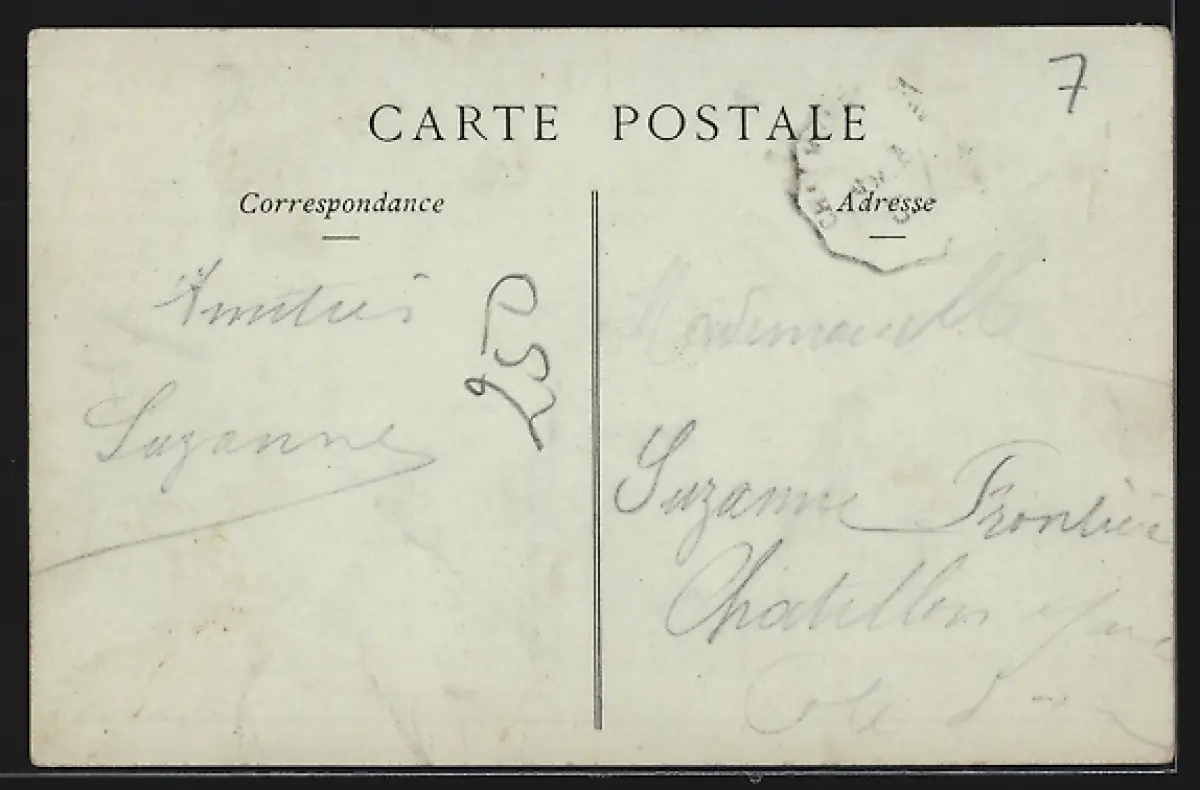 CARTE POSTALE
7
Correspondance
Adresse
Amitiés
Suzanne
250
Mademoiselle
Suzanne
Chatillon
Cote d'or